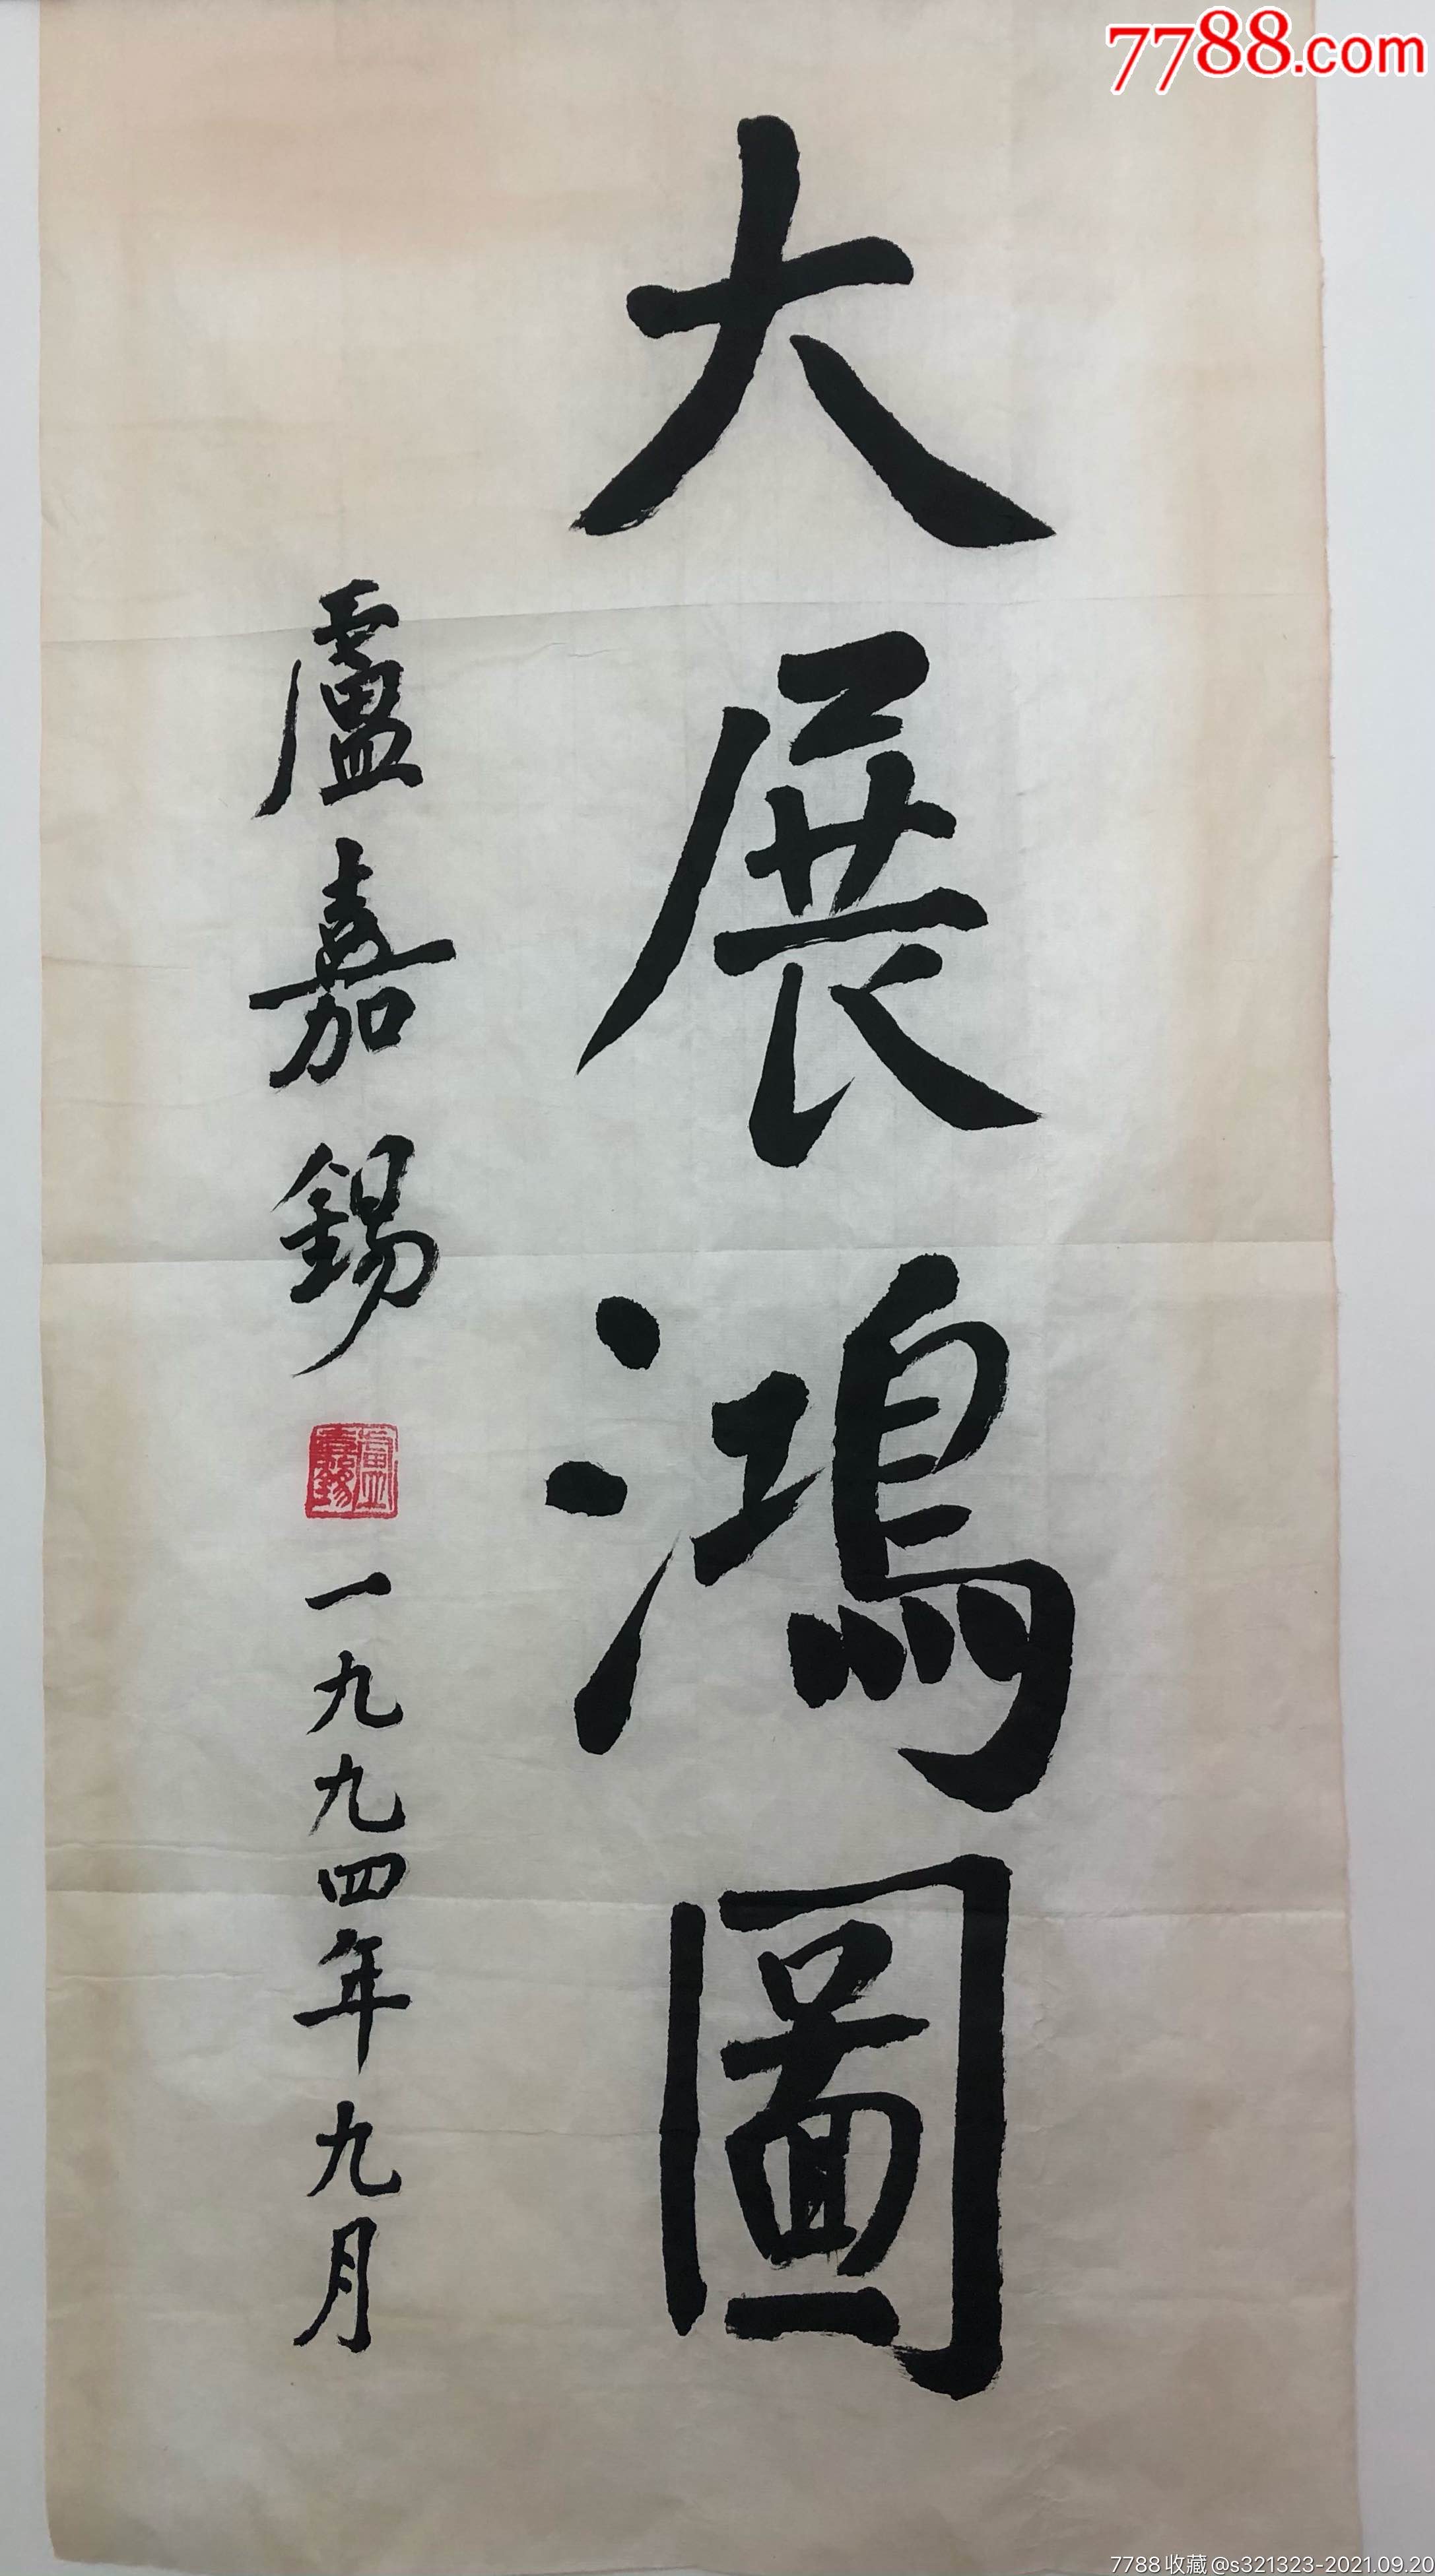 7788.com
大展鴻圖
盧嘉錫
盧嘉錫
一九九四年九月
7788收藏@s321323-2021.09.20